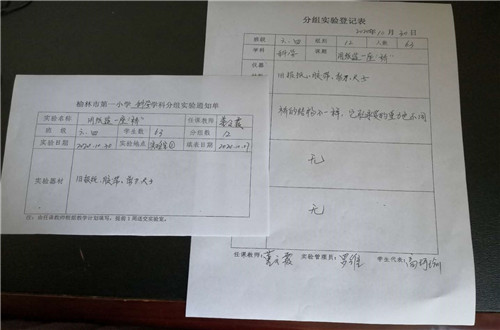 榆林市第一小学 科学 学科分组实验通知单
实验名称 用纸造一座"桥" 任课教师
班级 六.四 学生数 63 分组数 12
实验日期 2020.11.30 实验地点 填表日期 2020.11.
实验器材 旧报纸、胶带、剪刀、尺子
注：由任课教师根据教学计划填写，提前1周送交实验室。
分组实验登记表
2020年11月30日
班级 六.四 组数 12 人数 63
学科 科学 课题 用纸造一座"桥"
仪器
旧报纸、胶带、剪刀、尺子
桥的结构不一样，它能承受的重也不同
无
无
任课教师： 实验管理员：罗维 学生代表：